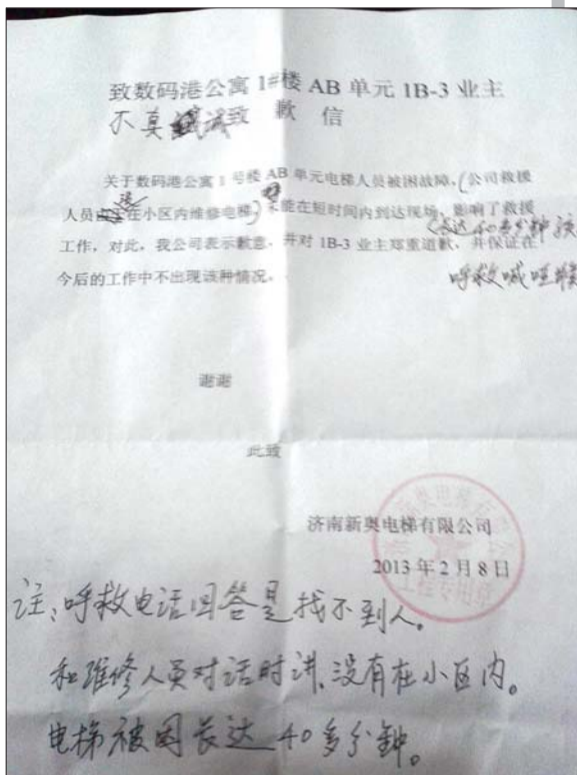 致数码港公寓 1#楼 AB 单元 1B-3 业主
不真诚致 歉 信
关于数码港公寓 1 号楼 AB 单元电梯人员被困故障,(公司救援
人员在小区内维修电梯)未能在短时间内到达现场,影响了救援
(长达40多分钟孩
工作,对此,我公司表示歉意,并对 1B-3 业主郑重道歉,并保证在
今后的工作中不出现该种情况。
呼救喊哑喉
谢谢
此致
济南新奥电梯有限公司
2013 年 2 月 8 日
工程专用章
注:呼救电话回答是找不到人。
和维修人员对话时讲,没有在小区内。
电梯被困长达40多分钟。